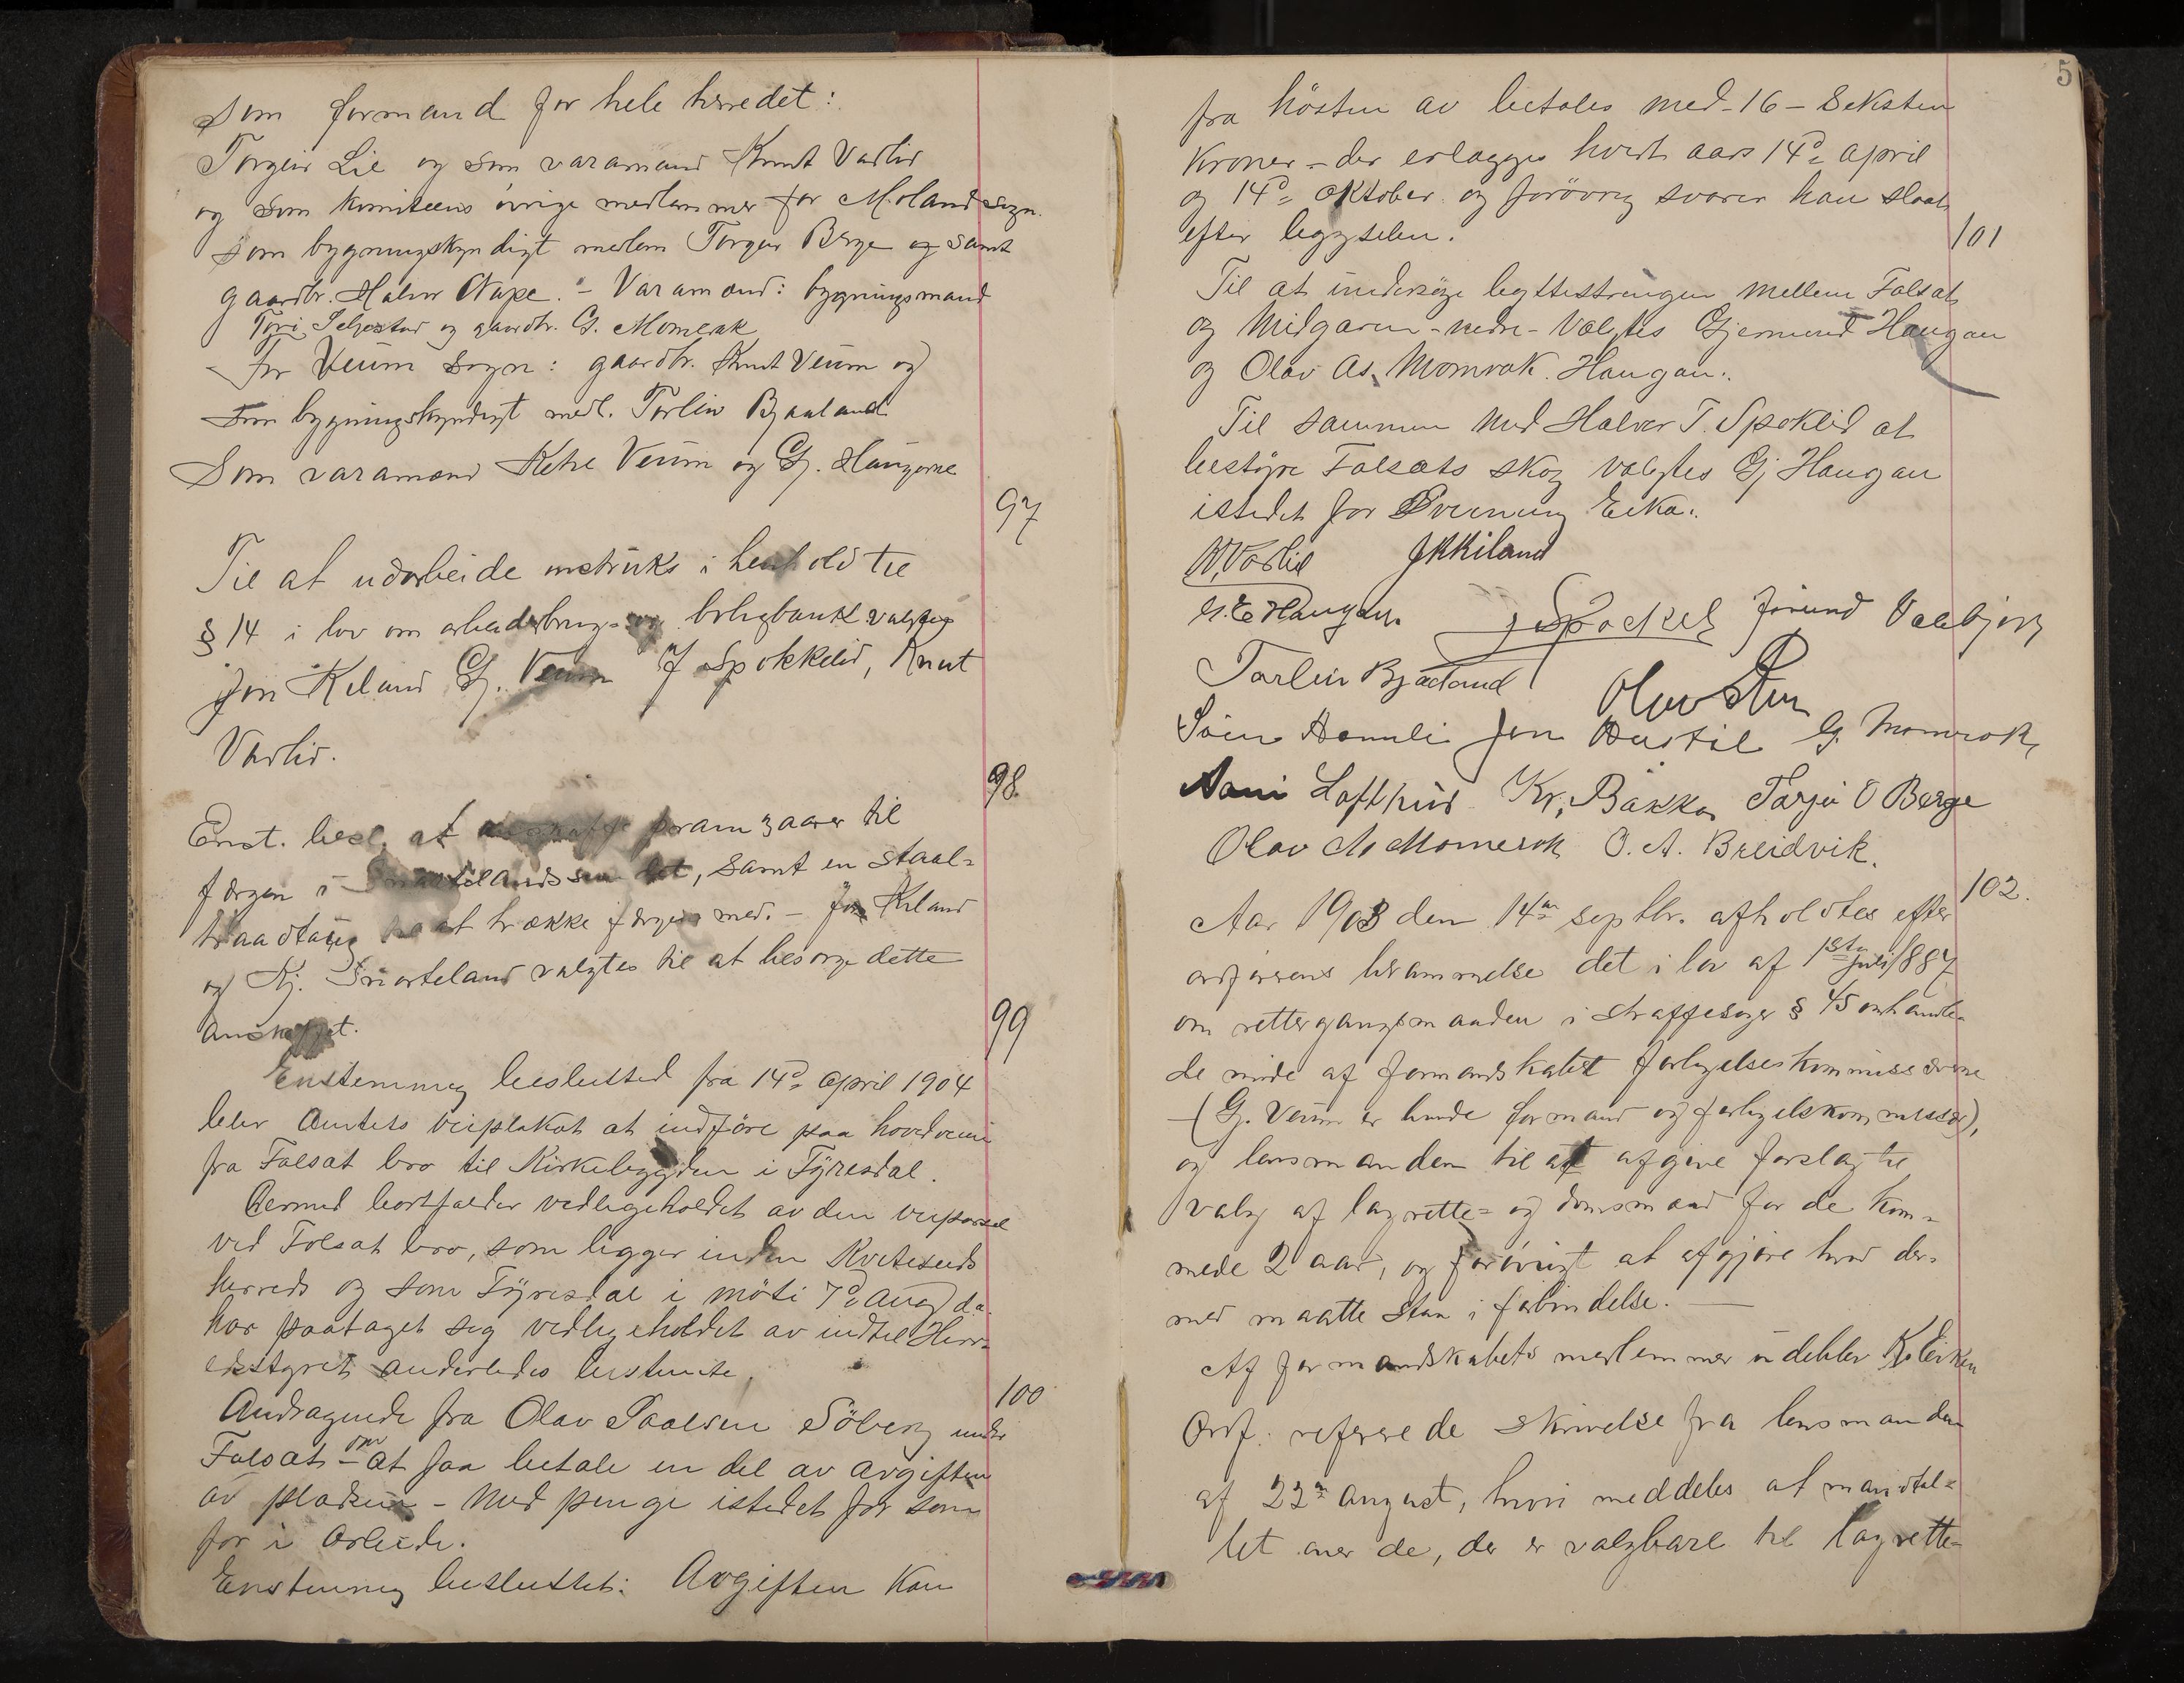 Som formand for hele herredet:
Torgeir Lie og som varamand Knut Vaslid
og som komiteens övrige medlemmer for Moland sogn.
Som bygningskyndigt medlem Torgeir Berge og samt
gaardbr. Halvor Nape. - Varamænd: bygningsmand
og gaardbr. G. Momrak
- for Veum sogn: gaardbr. Knut Veum og
som bygningskyndigt medl. Torleiv Bjaaland
Som varamænd Ketil Veum og Gj. Haugerne
97
Til at udarbeide instruks i henhold til
§ 14 i lov om arbeiderbrug- og boligbank valgtes
Jon Kiland Gj. Veum J Spokkelid, Knut
Vaslid.
98.
Enst. besl. at anskaffe pramgaarer til
færgen i, samt en staal-
traadtaug til at trække færgen med. - Jon Kiland
og Kj. Smorteland valgtes til at besörge dette
anskaffet.
99
Enstemmig beslutted fra 14d= April 1904
blev Amtets veiplakat at indföre paa hovedveien
fra Folsat bro til Kirkebygden i Tyresdal.
Hermed bortfalder vedligeholdet av den veiparsel
ved Folsat bro, som ligger inden Kviteseids
herreds og som Tyresdal i möte 7d= Aug d.a.
har paataget sig vedligeholdet av indtil Herr-
edstyret anderledes bestemte.
100
Andragende fra Olav Paalsen Söberg under
Folsat - om at faa betale en del av avgiften
av pladsen - med penge istedet for som
för i Arbeide.
Enstemmig besluttet: Avgiften kan
5
fra hösten av betales med - 16 - Seksten
Kroner - der erlægges hvert aars 14d= April
og 14d= Oktober og forövrig svarer han
efter bygselen.
101
Til at undersöge byttestrengen mellem Folsat
og Midgaren - nedre - valgtes Gjermund Haugan
og Olav As. Momrak. Haugan.
Til sammen med Halvor T. Spoklid at
bestyre Folsats skog valgtes Gj Haugan
istedet for Sveinung Eika.
K. Vaslid JKKiland
G. E Haugan. J Spockeli Jörund Valebjörg
Tarleiv Bjaaland Olav Sten
Sören Homli Jon Austil G. Momrak,
Aani Lofthus Kr. Bakka Tarjei O Berge
Olav As Momrak O. A. Breidvik.
102.
Aar 1903 den 14de septbr. afholdtes efter
ordförerens berammelse det i lov af 1ste juli 1887
om rettergangsmaaden i straffesager § 45 omhandle-
de möde af formandskabet forligelseskommissærene
- (G. Veum er baade formand og forligelskommissær),
og lensmanden til at afgive forslag til
valg af lagrette- og domsmænd for de kom-
mende 2 aar, og forövrigt at afgjöre hvad der-
med maatte staa i forbindelse. -
Af formandskabets medlemmer udeblev K. Eikin
Ordf. refererede skrivelse fra lensmanden
af 22de august, hvori meddeles at mandtal-
let over de, der er valgbare til lagrette-